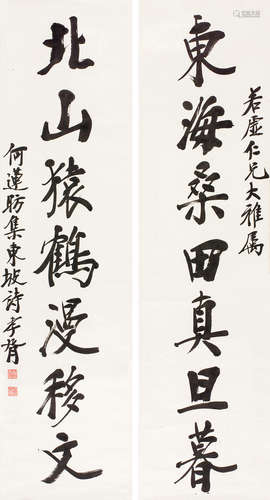 若虛仁兄大雅属
東海桑田真旦暮
北山猿鶴漫移文
何蓮昉集東坡詩李胥